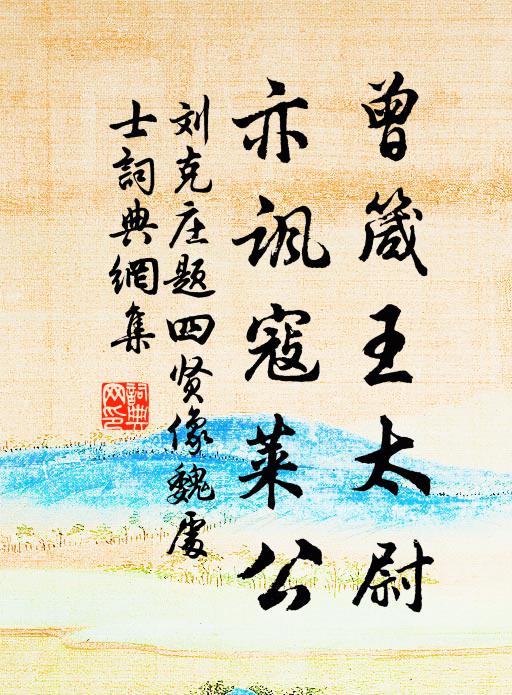 曾箴王太尉
亦讽寇莱公
刘克庄题四贤像魏处
士詞典網集
詞典
网印